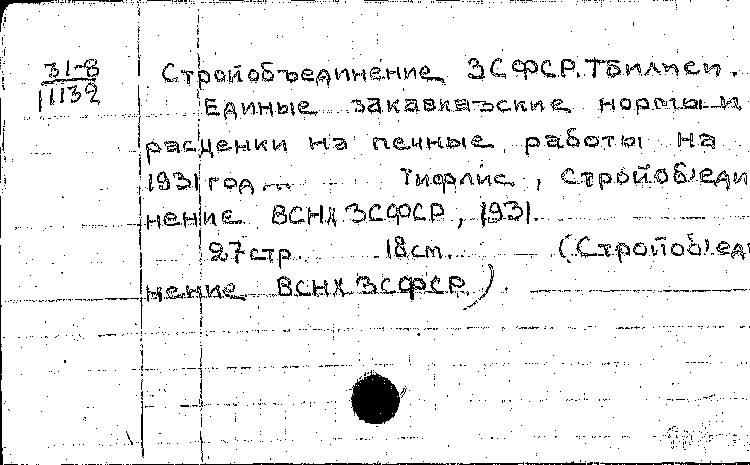 31-8
11132
Стройобъединение ЗСФСР. Тбилиси.
Единые закавказские нормы и
расценки на печные работы на
1931 год ... Тифлис, Стройоб'еди
нение ВСНХ ЗСФСР, 1931.
27 стр. 18 см. (Стройоб'еди
нение ВСНХ ЗСФСР).